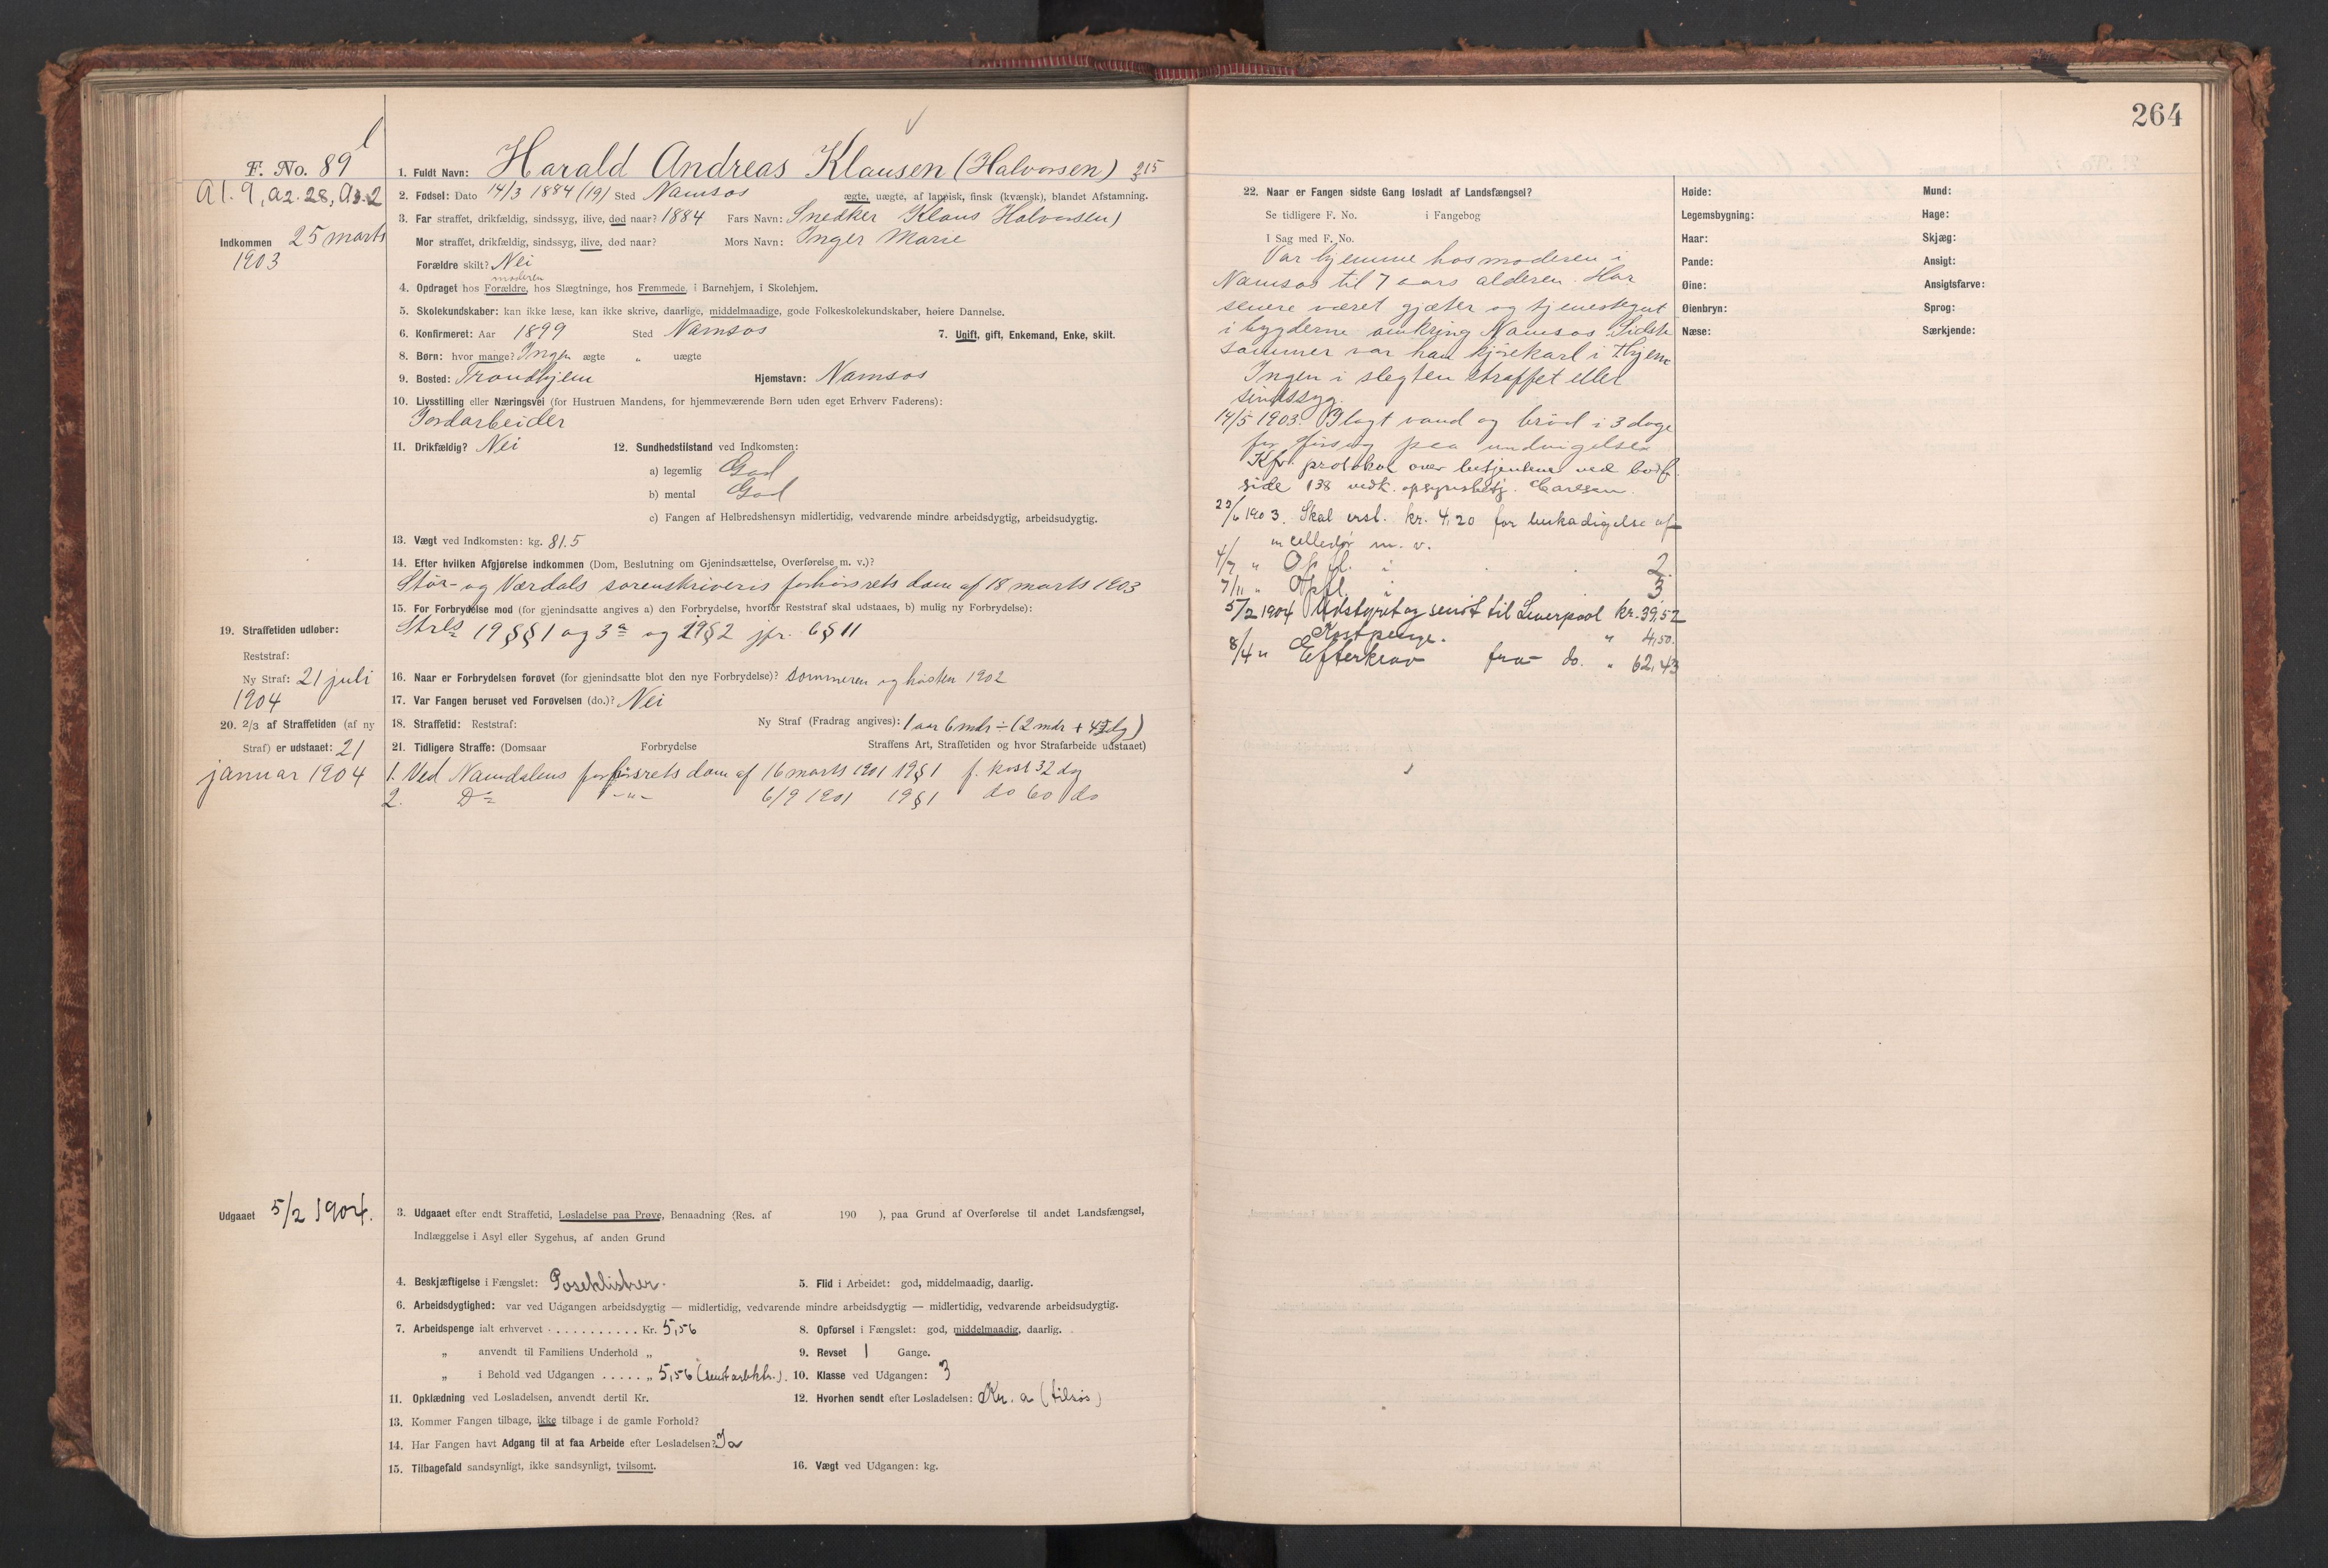 264
F. No. 89
A1. 9, A2. 28, A3. 2
Indkommen 25 marts
1903
1. Fuldt Navn: Harald Andreas Klausen (Halvorsen) 215
2. Fødsel: Dato 14/3 1884 (19) Sted Namsos ægte, uægte, af lappisk, finsk (kvænsk), blandet Afstamning.
3. Far straffet, drikfældig, sindssyg, ilive, død naar? 1884 Fars Navn: Snedker Klaus Halvorsen)
Mor straffet, drikfældig, sindssyg, ilive, død naar? Mors Navn: Inger Marie
Forældre skilt? Nei
moderen
4. Opdraget hos Forældre, hos Slægtninge, hos Fremmede, i Barnehjem, i Skolehjem.
5. Skolekundskaber: kan ikke læse, kan ikke skrive, daarlige, middelmaadige, gode Folkeskolekundskaber, høiere Dannelse.
6. Konfirmeret: Aar 1899 Sted Namsos 7. Ugift, gift, Enkemand, Enke, skilt.
8. Børn: hvor mange? Ingen ægte „ uægte
9. Bosted: Trondhjem Hjemstavn: Namsos
10. Livsstilling eller Næringsvei (for Hustruen Mandens, for hjemmeværende Børn uden eget Erhverv Faderens):
Jordarbeider
11. Drikfældig? Nei 12. Sundhedstilstand ved Indkomsten:
a) legemlig God
b) mental God
c) Fangen af Helbredshensyn midlertidig, vedvarende mindre arbeidsdygtig, arbeidsudygtig.
13. Vægt ved Indkomsten: kg. 81.5
14. Efter hvilken Afgjørelse indkommen (Dom, Beslutning om Gjenindsættelse, Overførelse m. v.)?
Stør- og Værdals sorenskriveris forhørsrets dom af 18 marts 1903
15. For Forbrydelse mod (for gjenindsatte angives a) den Forbrydelse, hvorfor Reststraf skal udstaaes, b) mulig ny Forbrydelse):
Strls 19 §§ 1 og 3a og 29 § 2 jfr. 6 § 11
19. Straffetiden udløber:
Reststraf:
Ny Straf: 21 juli
1904
16. Naar er Forbrydelsen forøvet (for gjenindsatte blot den nye Forbrydelse)? sommeren og høsten 1902
17. Var Fangen beruset ved Forøvelsen (do.)? Nei
20. 2/3 af Straffetiden (af ny
Straf) er udstaaet: 21
januar 1904
18. Straffetid: Reststraf: Ny Straf (Fradrag angives): 1 aar 6 mdr ÷ (2 mdr + 4 dg)
21. Tidligere Straffe: (Domsaar Forbrydelse Straffens Art, Straffetiden og hvor Strafarbeide udstaaet)
1. Ved Namdalens forhørsrets dom af 16 marts 1901 19 § 1 f. kost 32 dg
2. Do -"- 6/9 1901 19 § 1 do 60 do
Udgaaet 5/2 1904.
3. Udgaaet efter endt Straffetid, Løsladelse paa Prøve, Benaadning (Res. af 190 ), paa Grund af Overførelse til andet Landsfængsel,
Indlæggelse i Asyl eller Sygehus, af anden Grund
4. Beskjæftigelse i Fængslet: Poseklistrer. 5. Flid i Arbeidet: god, middelmaadig, daarlig.
6. Arbeidsdygtighed: var ved Udgangen arbeidsdygtig — midlertidig, vedvarende mindre arbeidsdygtig — midlertidig, vedvarende arbeidsudygtig.
7. Arbeidspenge ialt erhvervet . . . . . . . . . . . Kr. 5,56 8. Opførsel i Fængslet: god, middelmaadig, daarlig.
„ anvendt til Familiens Underhold „ 9. Revset 1 Gange.
„ i Behold ved Udgangen . . . . . „ 5,56 10. Klasse ved Udgangen: 3
11. Opklædning ved Løsladelsen, anvendt dertil Kr. 12. Hvorhen sendt efter Løsladelsen: Kr. a (tilsøs)
13. Kommer Fangen tilbage, ikke tilbage i de gamle Forhold?
14. Har Fangen havt Adgang til at faa Arbeide efter Løsladelsen? Ja
15. Tilbagefald sandsynligt, ikke sandsynligt, tvilsomt. 16. Vægt ved Udgangen: kg.
22. Naar er Fangen sidste Gang løsladt af Landsfængsel?
Se tidligere F. No. i Fangebog
I Sag med F. No.
Var hjemme hos moderen i
Namsos til 7 aars alderen. Har
senere været gjæter og tjenestegut
i bygderne omkring Namsos. Sidste
sommer var han kjørekarl i Thjem
Ingen i slegten straffet eller
sindssyg.
14/5 1903. Ilagt vand og brød i 3 dage
for forsøg paa undvigelse
Kfr. protokol over betjentene ved bodsf.
side 138 vedk. opsynsbetj. Carlsen.
23/6 1903. Skal erst. kr. 4,20 for beskadigelse af
en celledør m. v.
4/7 " Opfl. i 2.
7/11 " Opfl. i 3
5/2 1904 Udstyret og sendt til Liverpool kr. 39,52
Kostpenge. " 4,50.
8/4 " Efterkrav fra do. " 62,43
Høide: Mund:
Legemsbygning: Hage:
Haar: Skjæg:
Pande: Ansigt:
Øine: Ansigtsfarve:
Øienbryn: Sprog:
Næse: Særkjende: